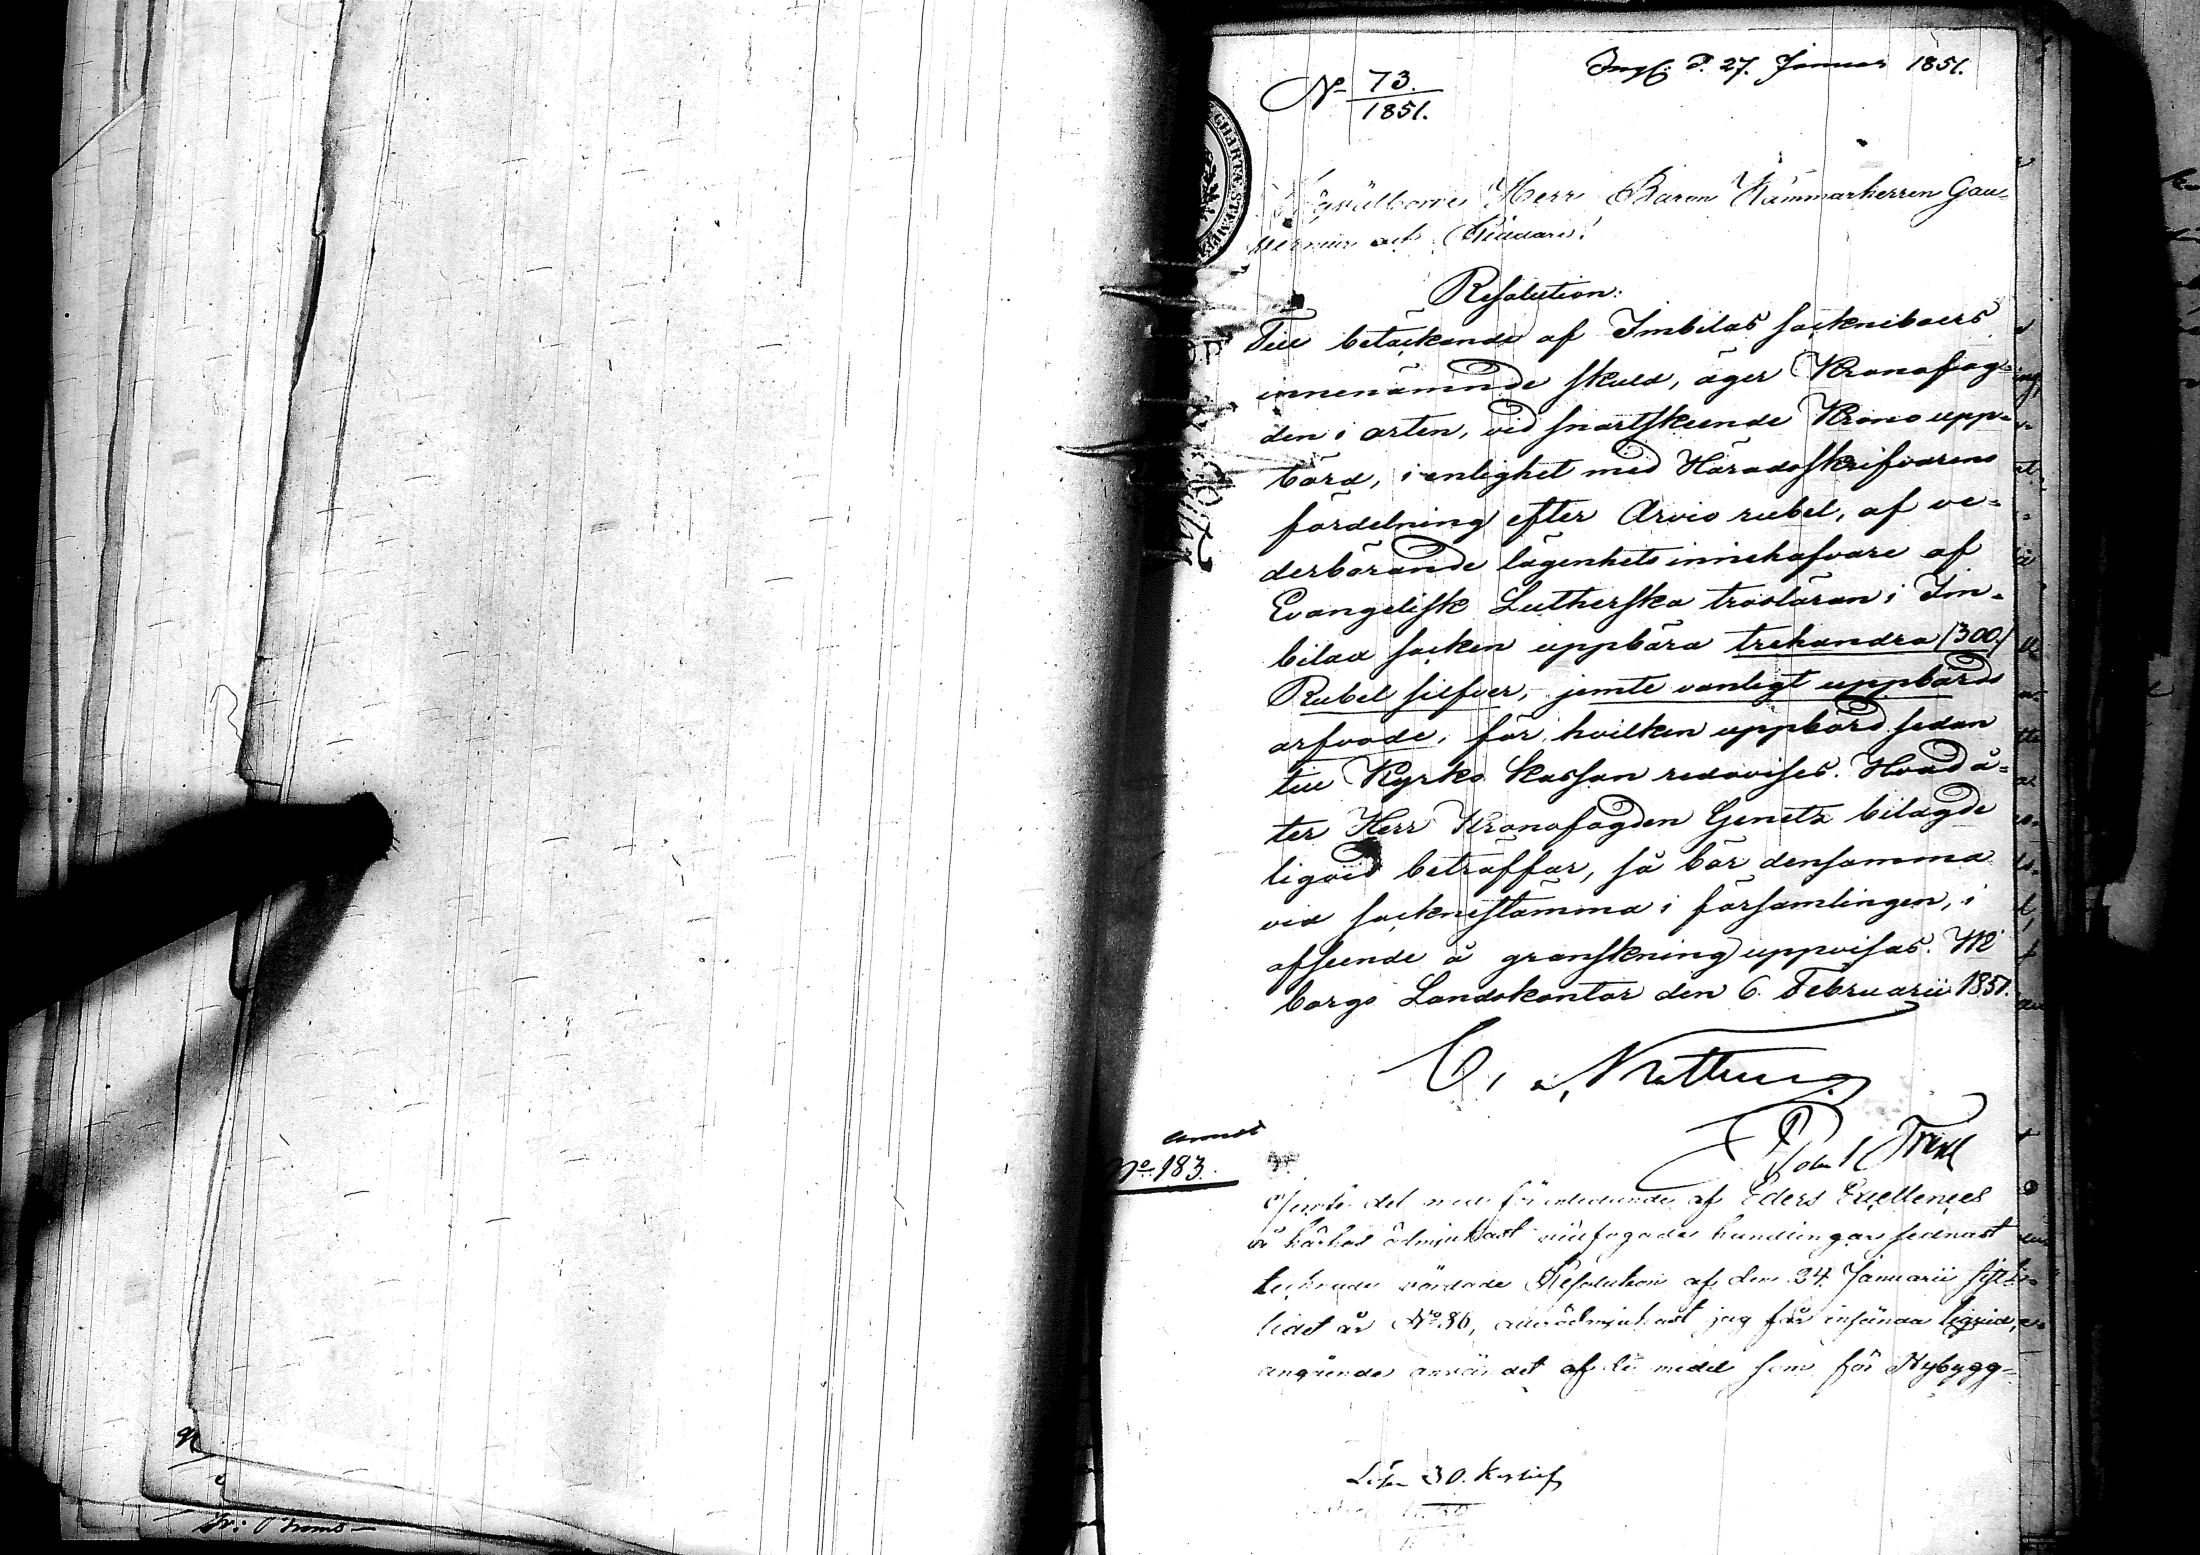 Ingf: d. 27. Januar 1851.
No 73.
1851.
Högvälborne Herr Baron Kammarherren Gou-
verneur och Riddare!
Resolution:
Till betäckande af Imbilax sockneboers
innenämnde skuld, äger Kronofog-
den i orten, vid snartskeende Krono upp-
börd, i enlighet med Häradsskrifvarens
fördelning efter Arvio rubel, af ve-
derbörande lägenhets innehafvare af
Evangelisk Lutherska trosläran i Im-
bilax socken uppbära trehundra /300/
Rubel silfver, jemte vanligt uppbörds
arfvode, för hvilken uppbörd sedan
till Kyrko kassan redovises. Hvad å-
ter Herr Kronofogden Genetz bilagde
ligvid beträffar, så bör densamma
vid socknestämma i församlingen, i
afseende å granskning uppvisas. Wi
borgs Landskontor den 6. Februarii 1851.
No. 183.
Jemte det med återsändande af Eders Excellences
å härhos ödmjukast vidfogade handlingar senast
tecknade vördade Resolution af den 24 Januarii sistl.
lidet år No 86, allraödmjukast jag får insända ligvid,
angående användet af de medel som för Nybygg-
Lösen 30. kop silf